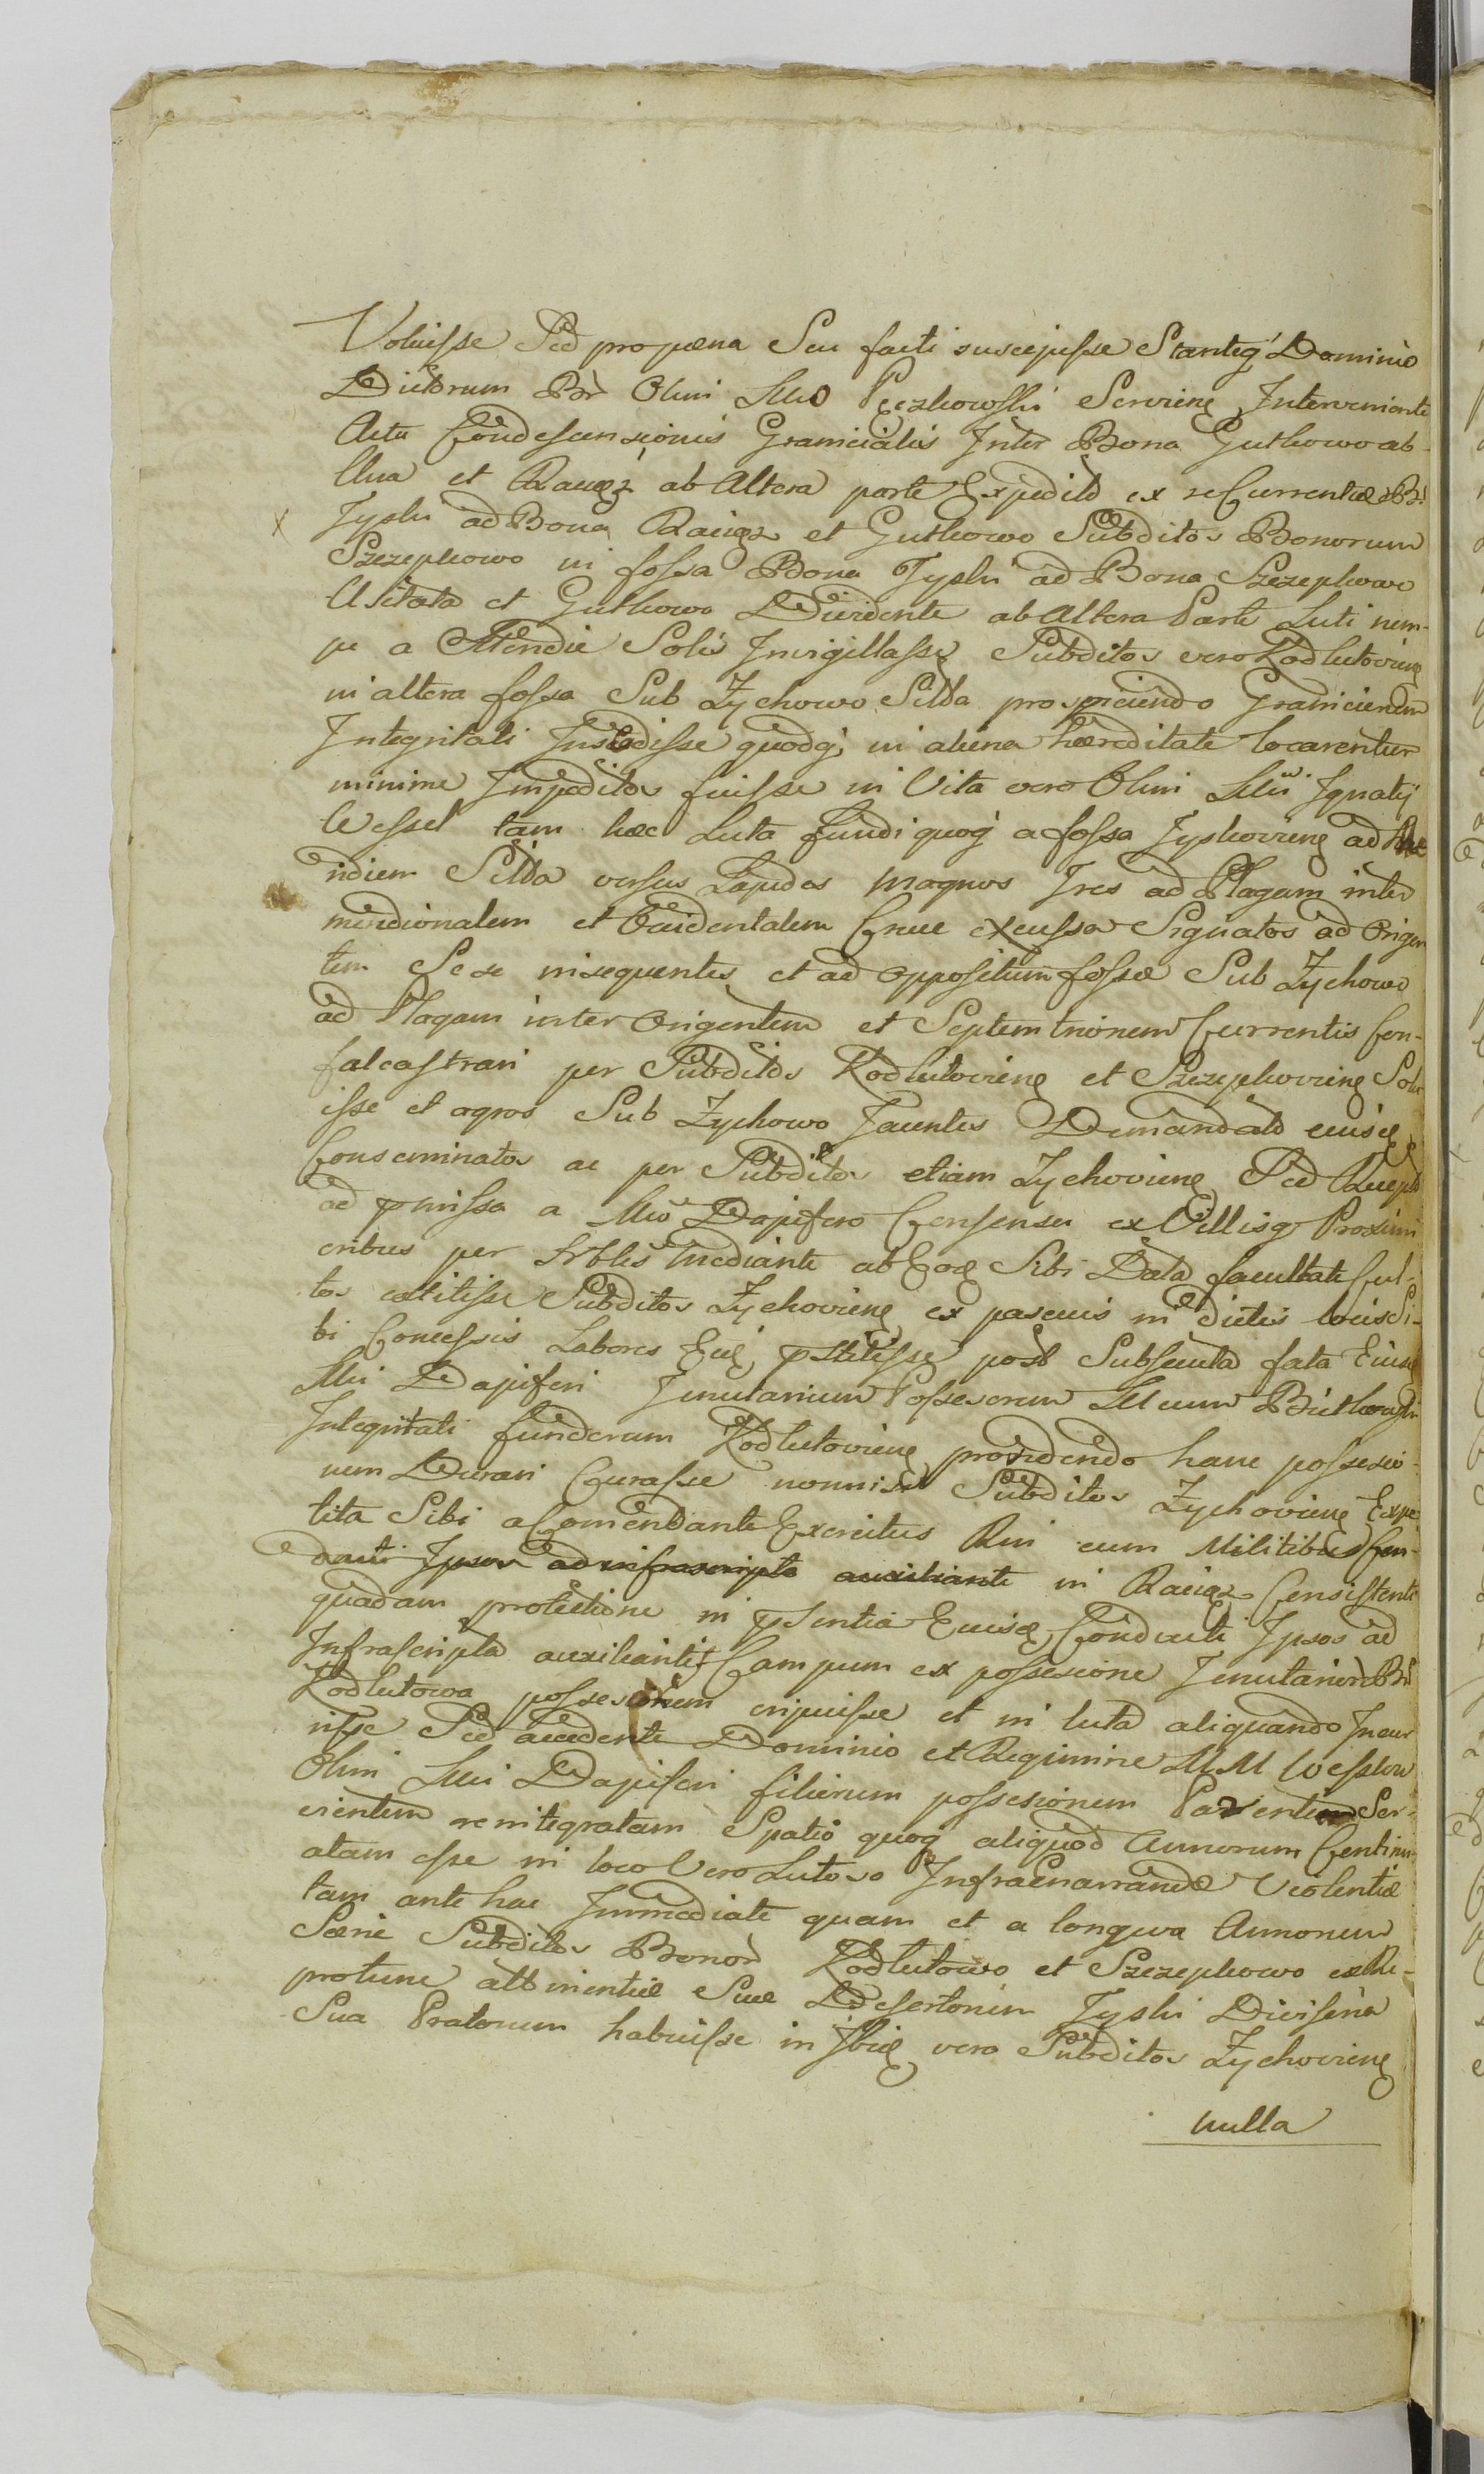 Voluisse Sed pro pœna Seu facti suscepisse Stanteq' Dominio
Dictorum Br̀ Olim Mḡo Pęczkowski Serviens Interveniente
Actu Condescensionis Granicialis Inter Bona Gutkowo ab
Una et Raciąż ab Altera parte Expedito ex reCurrentiæ Br̀
Jyski ad Bona Raciąż et Gutkowo Subditos Bonorum
Szczepkowo in fossa Bona Tyski ad Bona Szczepkowo
Usitata et Gutkowo Dividente ab Altera Parte Luti nem-
pe a Meridie Solis Invigillasse Subditos vero Kodlutoviens
in altera fossa Sub Zychowo Silva prospiciendo Graniciendm
Integritati Insedisse quodq' in aliena hæreditate locarentur
minime Impeditos fuisse in Vita vero Olim Mḡci Ignatij
Wessel tam hæc Luta fundi quoq' a fossa Jyskoviens ad Me
ridiem Silva versus Lapides magnos Tres ad Plagam inter
meridionalem et Occidentalem Cruce excussa Signatos ad Origen
tem Sese insequentes et ad oppositum fossæ Sub Zychowo
ad Plagam inter Origentem et Septemtrionem Currentis Con-
falcastrari per Subditos Kodlutoviens et Szczepkoviens Solu
isse et agros Sub Zychowo Jacentes Demandato eiusd
Conseminatos ac per Subditos etiam Zychoviens Sed Recepto
ad pmissa a Mḡo Dapifero Consensu ex Villisq Proximi
oribus per mediante ab Eod Sibi Data facultate Cul-
tos extitisse Subditos Zychoviens ex pascuis in dictis locis Si-
bi Concessis Labores Eid pstitisse post Subsecuta fata Eiusd
Mḡci Dapiferi Tenutarium Possesorem M cum
Integritati fundorum Kodlutoviens providendo hanc possesio-
nem Durari Curasse nonnisi Subditos Zychoviens Expe
tita Sibi a Comendante Exercitus Rui cum Militibus Con-
ducti Ipsos ad infrascripta auxiliante in Raciąż Consistente
quadam protectione in psentia Eiusd, Conducti Ipsos ad
Infrascripta auxiliantis Campum ex possesione Tenutariorum Br̀
Kodlutowa possesorum eripuisse et in luta aliquando Incur
risse Sed accedente Dominio et Regimine M M Wesslow
Olim Mḡci Dapiferi filiorum possesionem Parentem Ser-
vientem reintegratam Spatio quoq aliquod Annorum Continu
atam esse in loco Vero Lutoso Infraenarrandæ Violentiæ
tam ante hac Immediate quam et a longæva Annorum
Serie Subditos Bonor̀ Kodlutowo et Szczepkowo ex Re-
protunc attinentiæ Suæ Desertorum Jyski Divisina
Sua Pratorum habuisse in Ibid vero Subditos Zychoviens
nulla